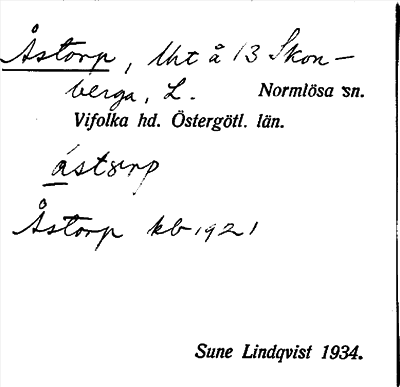 Åstorp, lht å 13 Skon-
berga, L. Normlösa sn.
Vifolka hd. Östergötl. län.
åstorp
Åstorp kb 1921
Sune Lindqvist 1934.